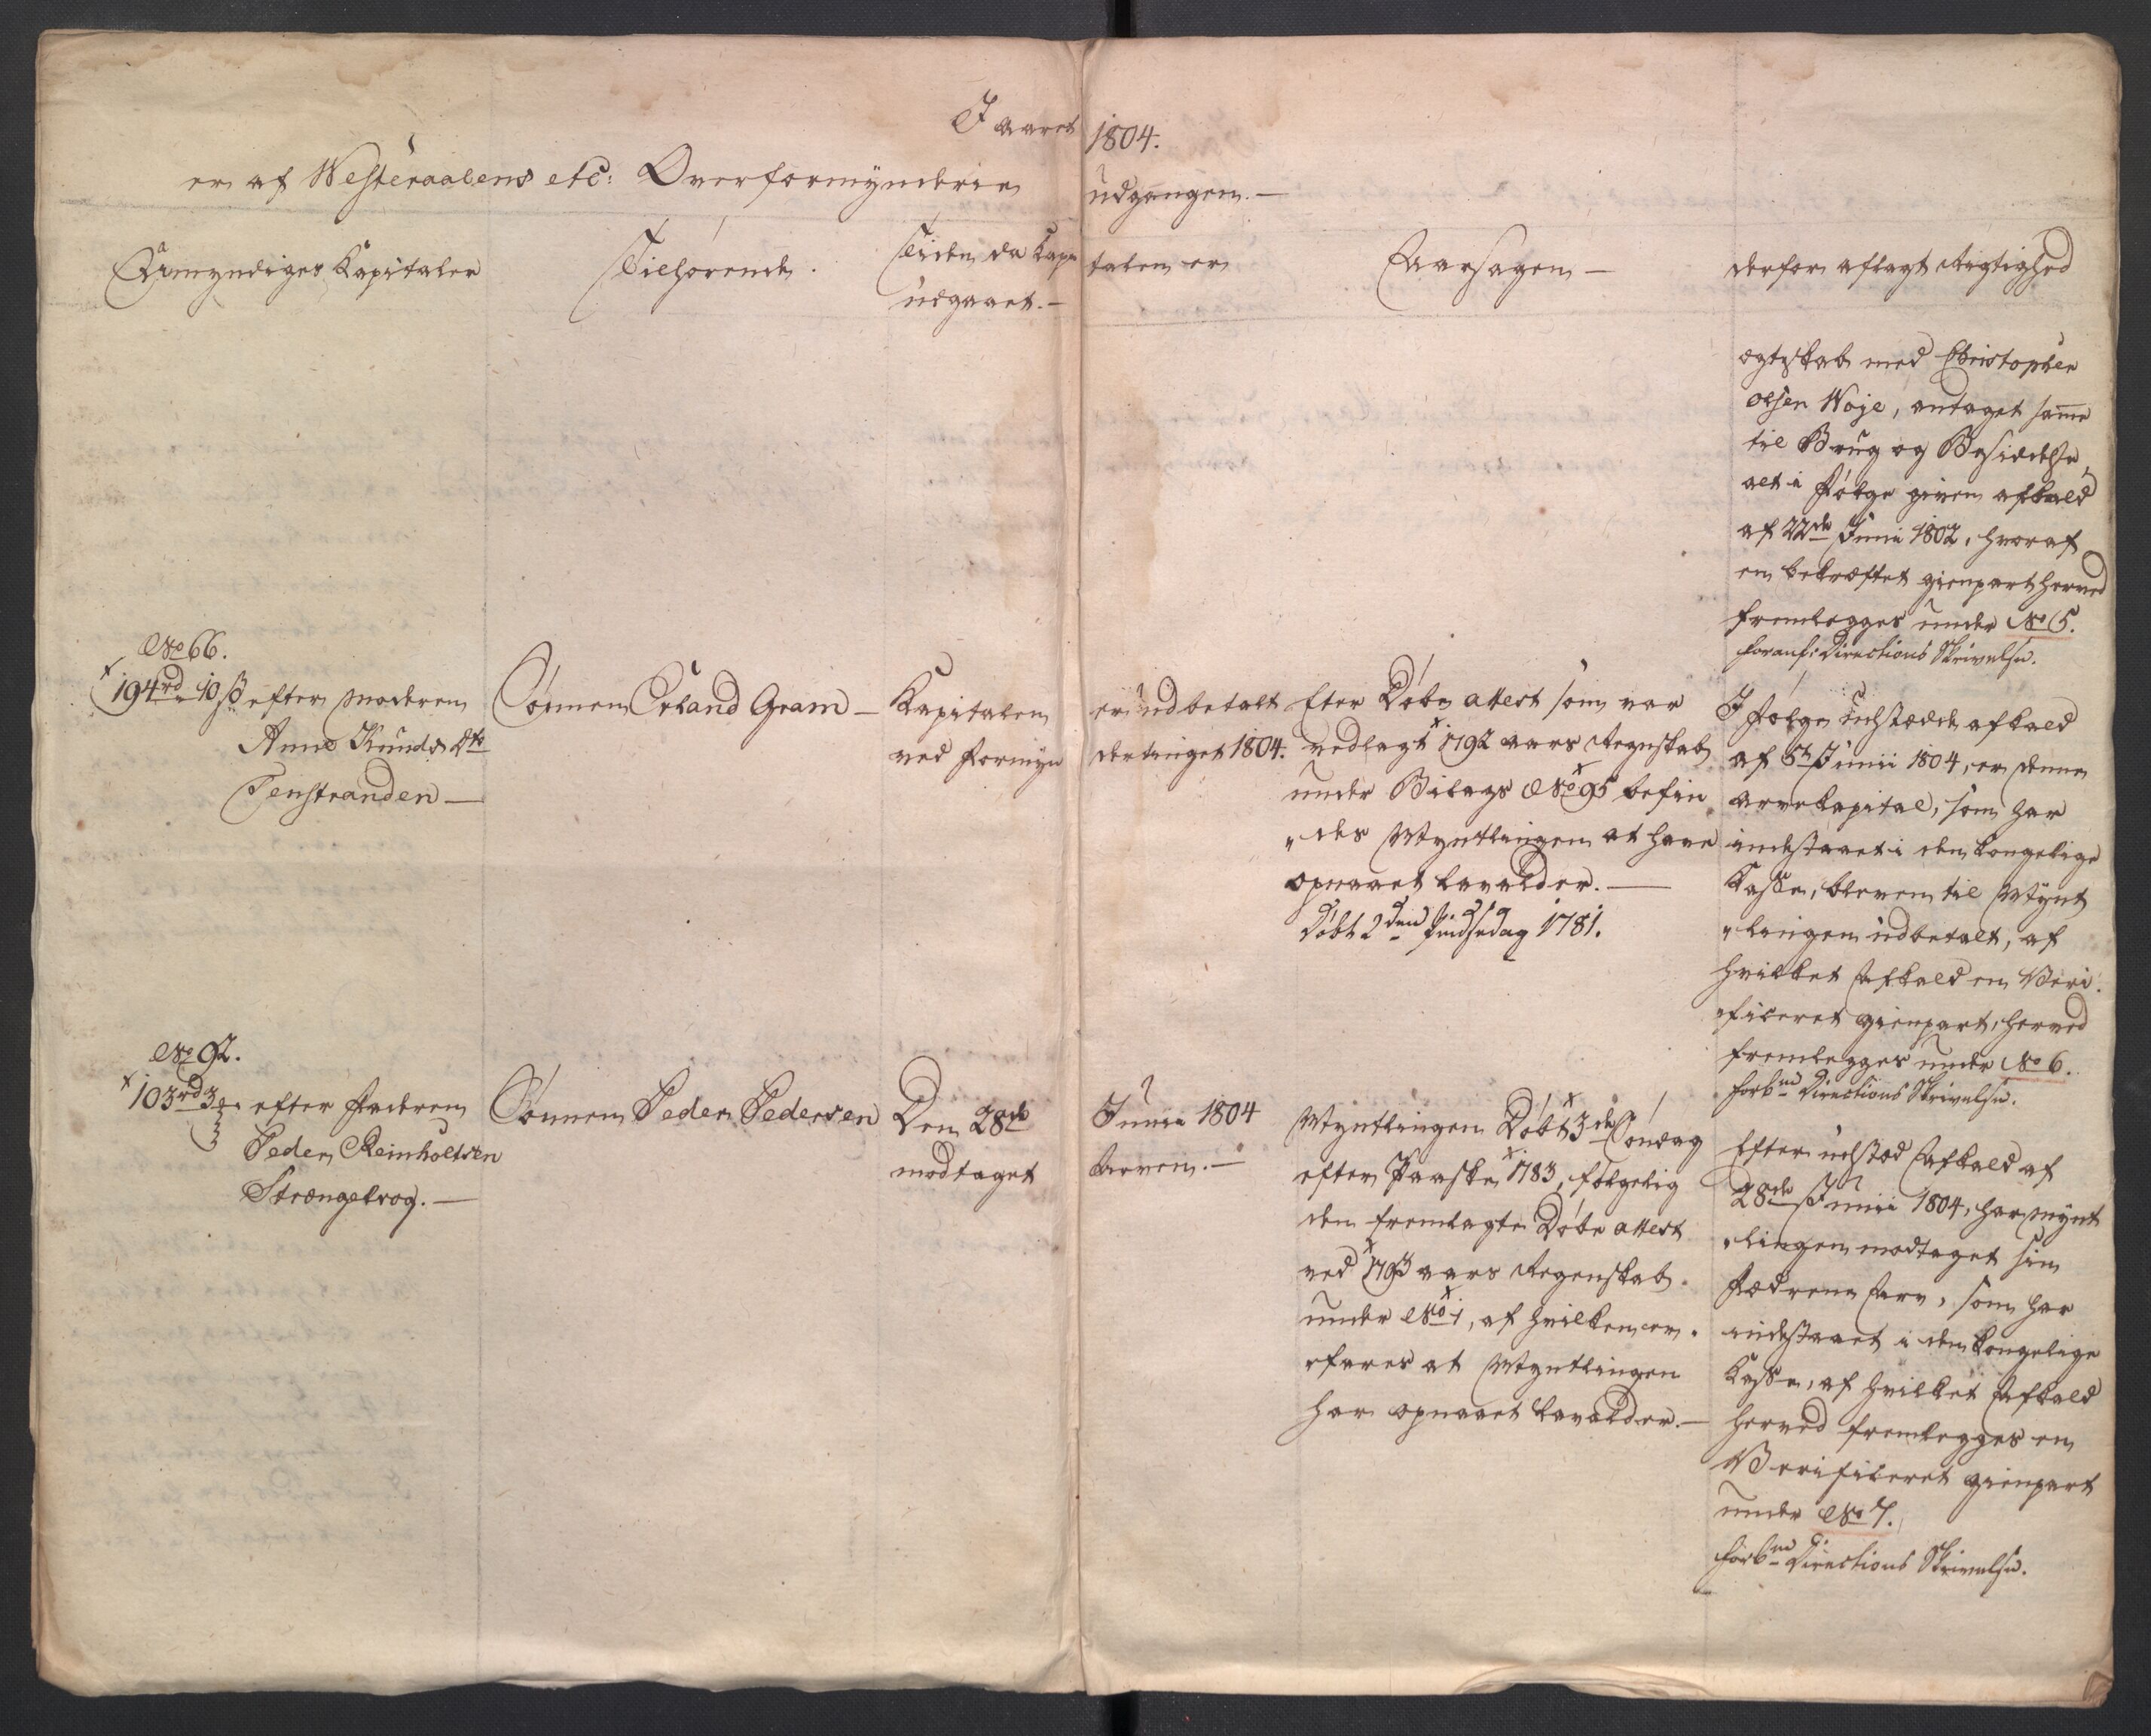 I aaret 1804.
er af Westeraalens etc: Overformynderie udgangen.—
Umyndiges Kapitaler
Tilhørende.
Tiden da Kapi talen er
udgaaet.—
Aarsagen —
derfor aflagt Rigtighed
ægteskab med Christopher
olsen Woje, antaget samme
til Brug og Besiddelse,
alt i Følge given afkald
af 22de Junii 1802, hvoraf
en bekræftet gienpart herved
fremlegges under No 5.
foranf: Directions Skrivelse.
No 66.
194rd 10 ß efter Moderen
Anne Knuds D.
Tenstranden —
Sønnen Erland Gram —
Kapitalen er udbetalt
ved Formyn dertinget 1804.
Efter Døbe attest som var
vedlagt 1792 aars Regnskab
under Bilags No 95 befin
„des Myntlingen at have
opnaaet lavalder. —
Døbt 2den Pindsedag 1781.
I Følge udstædde afkald
af 5te Junii 1804, er denne
arvekapital, som har
indestaaet i den kongelige
Kasse, bleven til Mynt
„lingen udbetalt, af
hvilket Afkald en Veri
„ficeret gienpart, herved
fremlegges under No 6.
forbne Directions Skrivelse.
No 92.
103rd 3 efter Faderen
Peder Reinholtsen
Strængelvog. —
Sønnen Peder Pedersen
Den 28de Junii 1804
modtaget Arven. —
Myntlingen Døbt 3de Søndag
efter Paaske 1783, følgelig
den fremlagte Døbe attest
ved 1793 aars Regenskab
under No 1, af hvilken er
„fares at Myntlingen
har opnaaet lavalder. —
Efter udstæd Afkald af
28de Junii 1804, har Mynt
„lingen modtaget sin
Fædrene Arv, som har
indestaaet i den kongelige
Kasse, af hvilket Afkald
herved fremlegges en
Verificeret gienpart
under No 7.
forbne Directions Skrivelse.